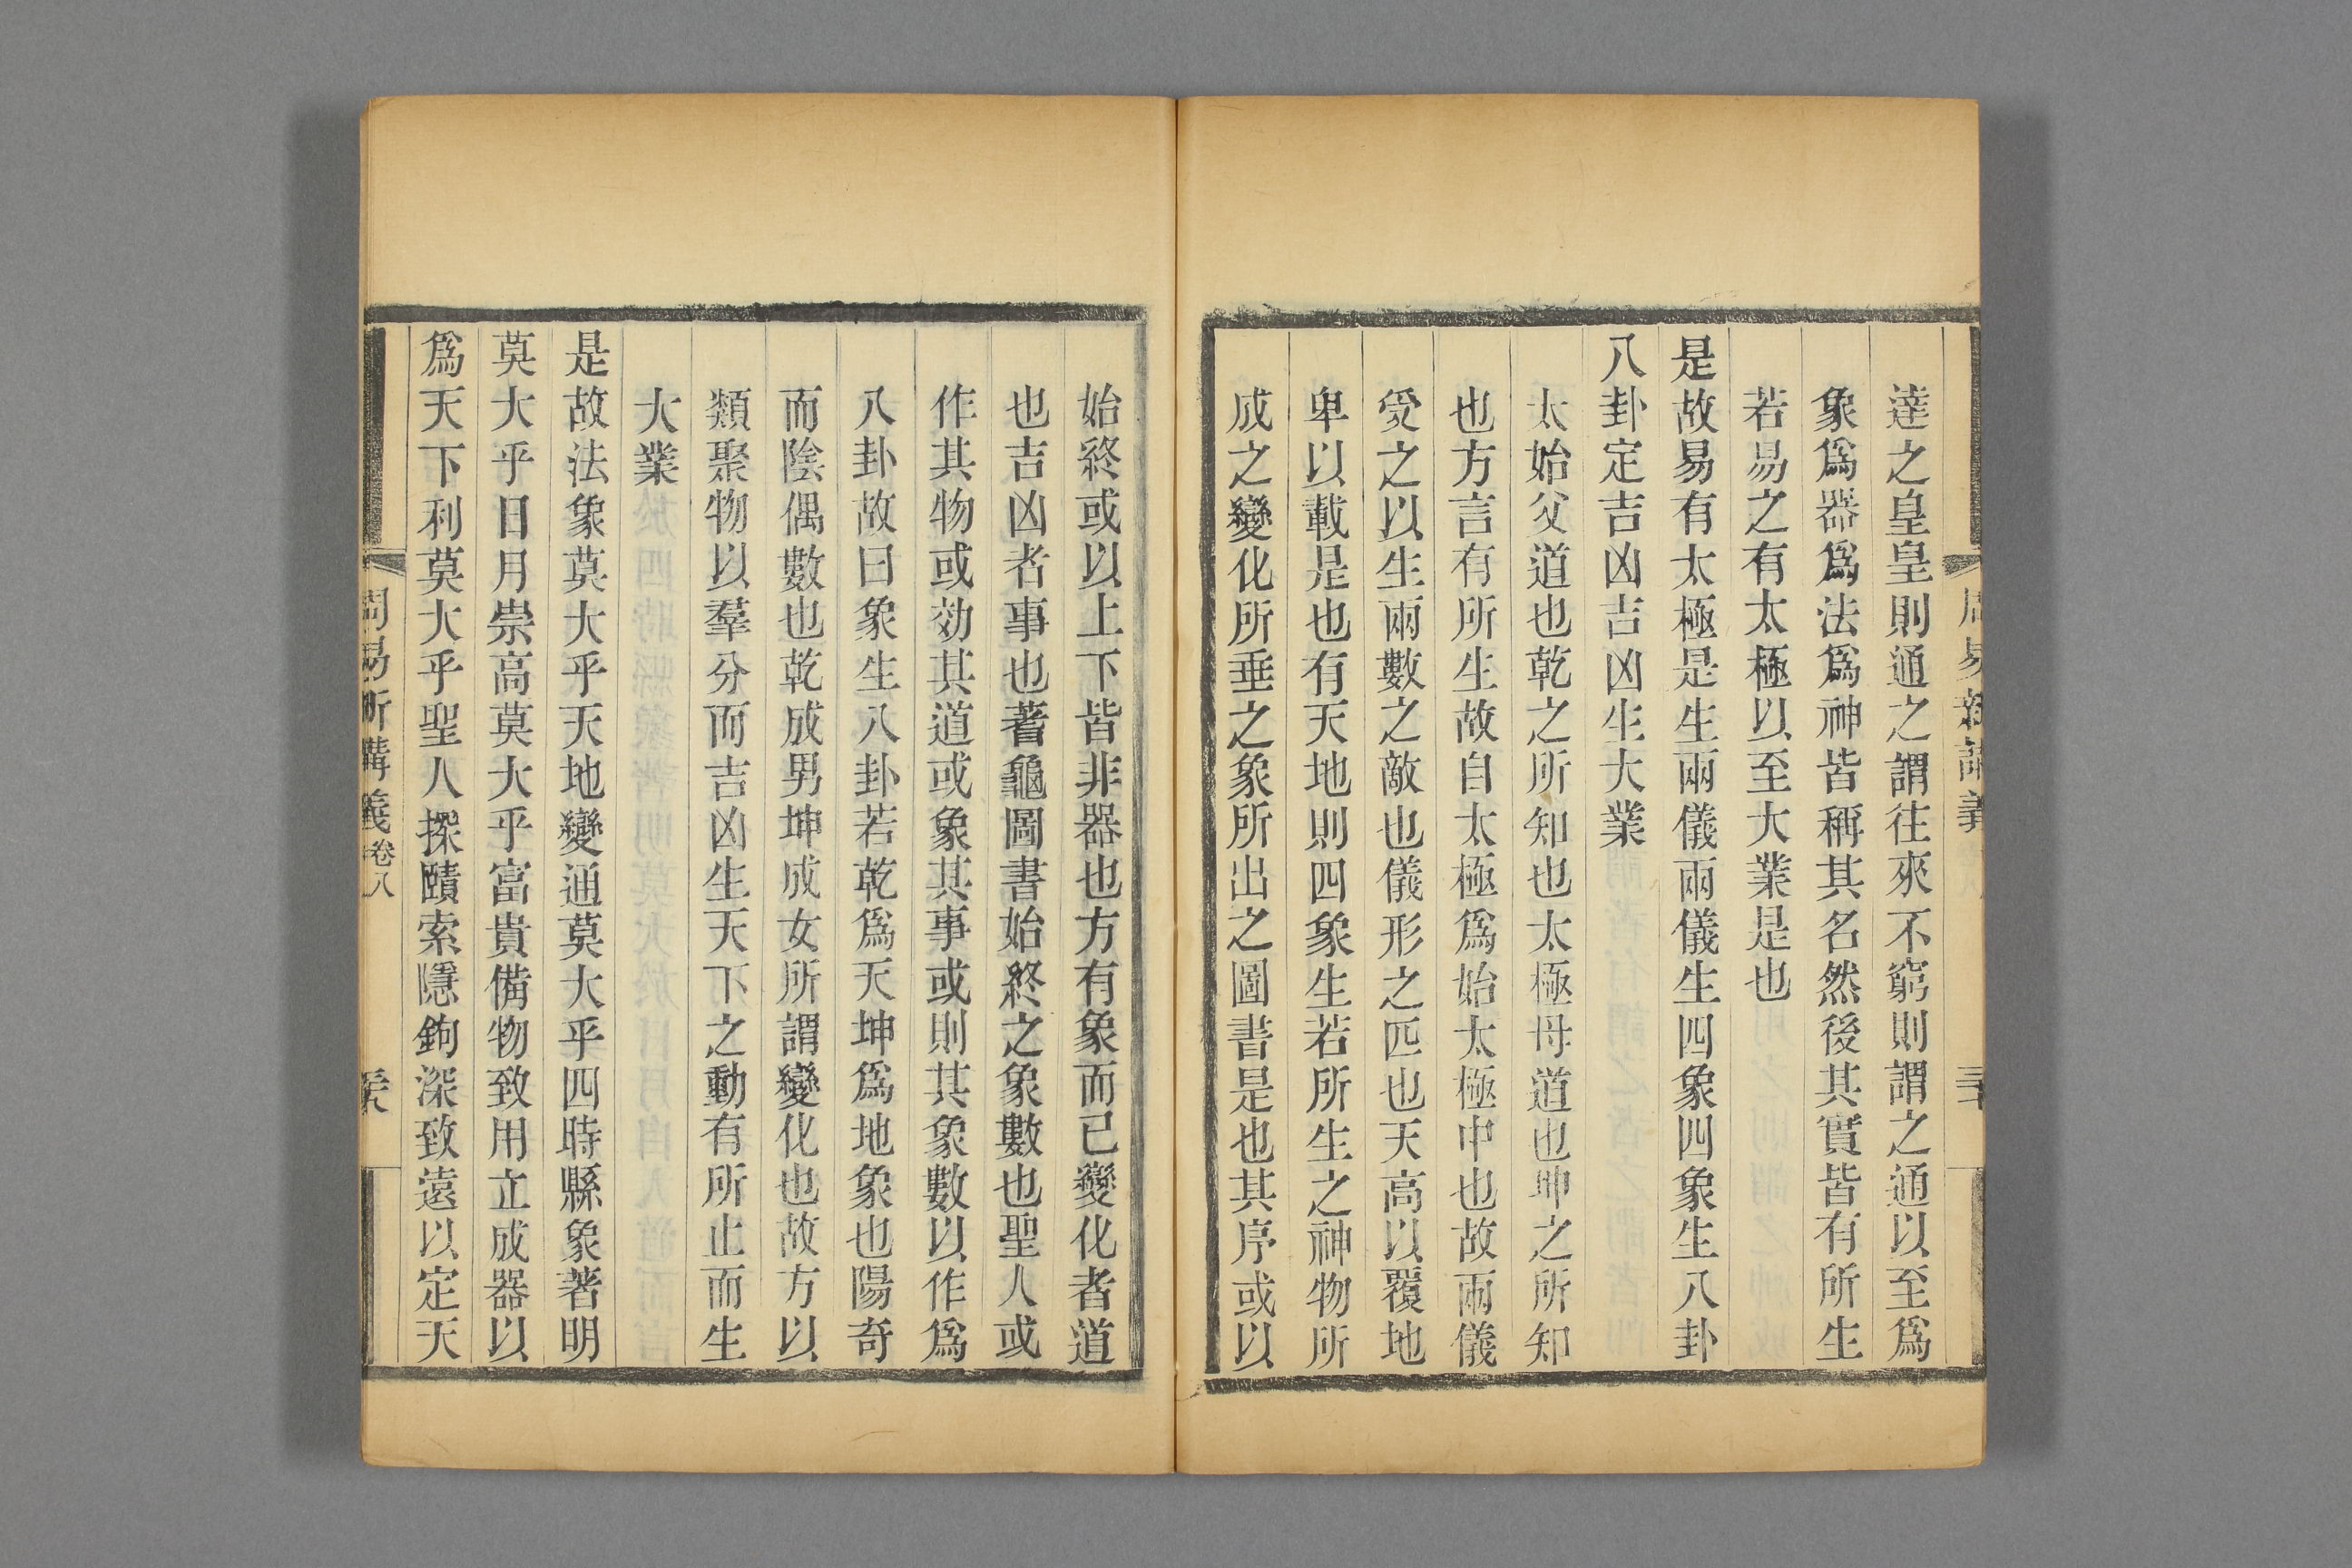 達之皇皇則通之謂往來不窮則謂之通以至爲
象爲器爲法爲神皆稱其名然後其實皆有所生
若易之有太極以至大業是也
是故易有太極是生兩儀兩儀生四象四象生八卦
八卦定吉凶吉凶生大業
太始父道也乾之所知也太極母道也坤之所知
也方言有所生故自太極爲始太極中也故兩儀
爰之以生兩數之敵也儀形之匹也天高以覆地
卑以載是也有天地則四象生若所生之神物所
成之變化所垂之象所出之圖書是也其序或以
始終或以上下皆非器也方有象而已變化者道
也吉凶者事也蓍龜圖書始終之象數也聖人或
作其物或効其道或象其事或則其象數以作爲
八卦故曰象生八卦若乾爲天坤爲地象也陽奇
而陰偶數也乾成男坤成女所謂變化也故方以
類聚物以羣分而吉凶生天下之動有所止而生
大業
是故法象莫大乎天地變通莫大乎四時縣象著明
莫大乎日月崇高莫大乎富貴備物致用立成器以
爲天下利莫大乎聖人探賾索隱鉤深致遠以定天
周易新講義卷八